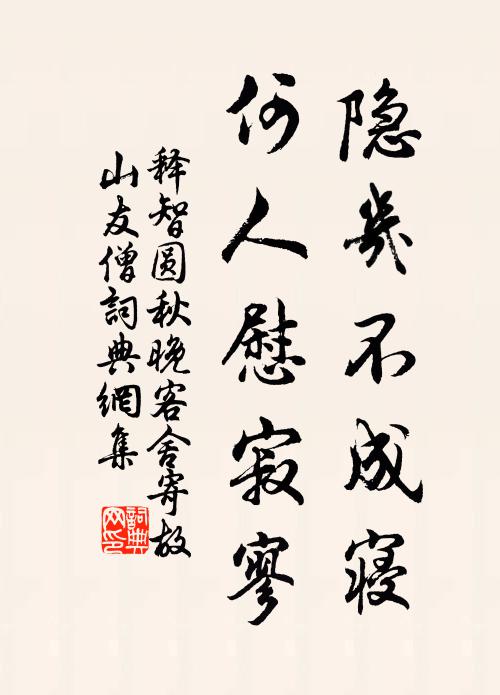 隐几不成寝
何人慰寂寥
释智圆秋晚客舍寄故
山友僧詞典網集
詞典網印